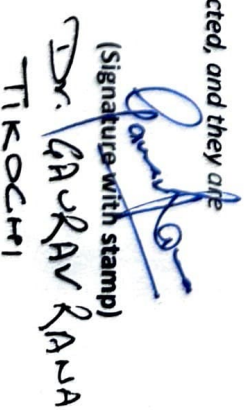 cted, and they are
(Signature with stamp)
Dr. GAURAV RANA
TIKOCHI